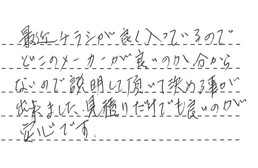 最近チラシが良く入っているので
どこのメーカーが良いのか分から
ないので説明して頂いて決める事が
出来ました、見積りだけでも良いのが
安心です